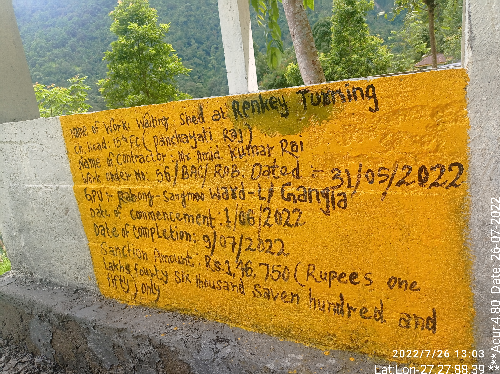 Name of Work: Waiting Shed at Renkey Turning
On Head: 15th FC (Panchayati Raj)
Name of Contractor: Mr. Amid Kumar Rai
Work order No: 56/BAC/RDB. Dated :- 31/05/2022
GPU :- Rabong-Sangmoo Ward-L/Gangla
Date of commencement 1/06/2022
Date of completion: 9/07/2022
Sanction Amount. Rs.1,46,750 (Rupees one
Lakhs fourty six thousand Saven hundred and
fifty) only
2022/7/26 13:03
Lat Lon-27.27,88.39
***Acur:4.80 Date: 26-07-2022